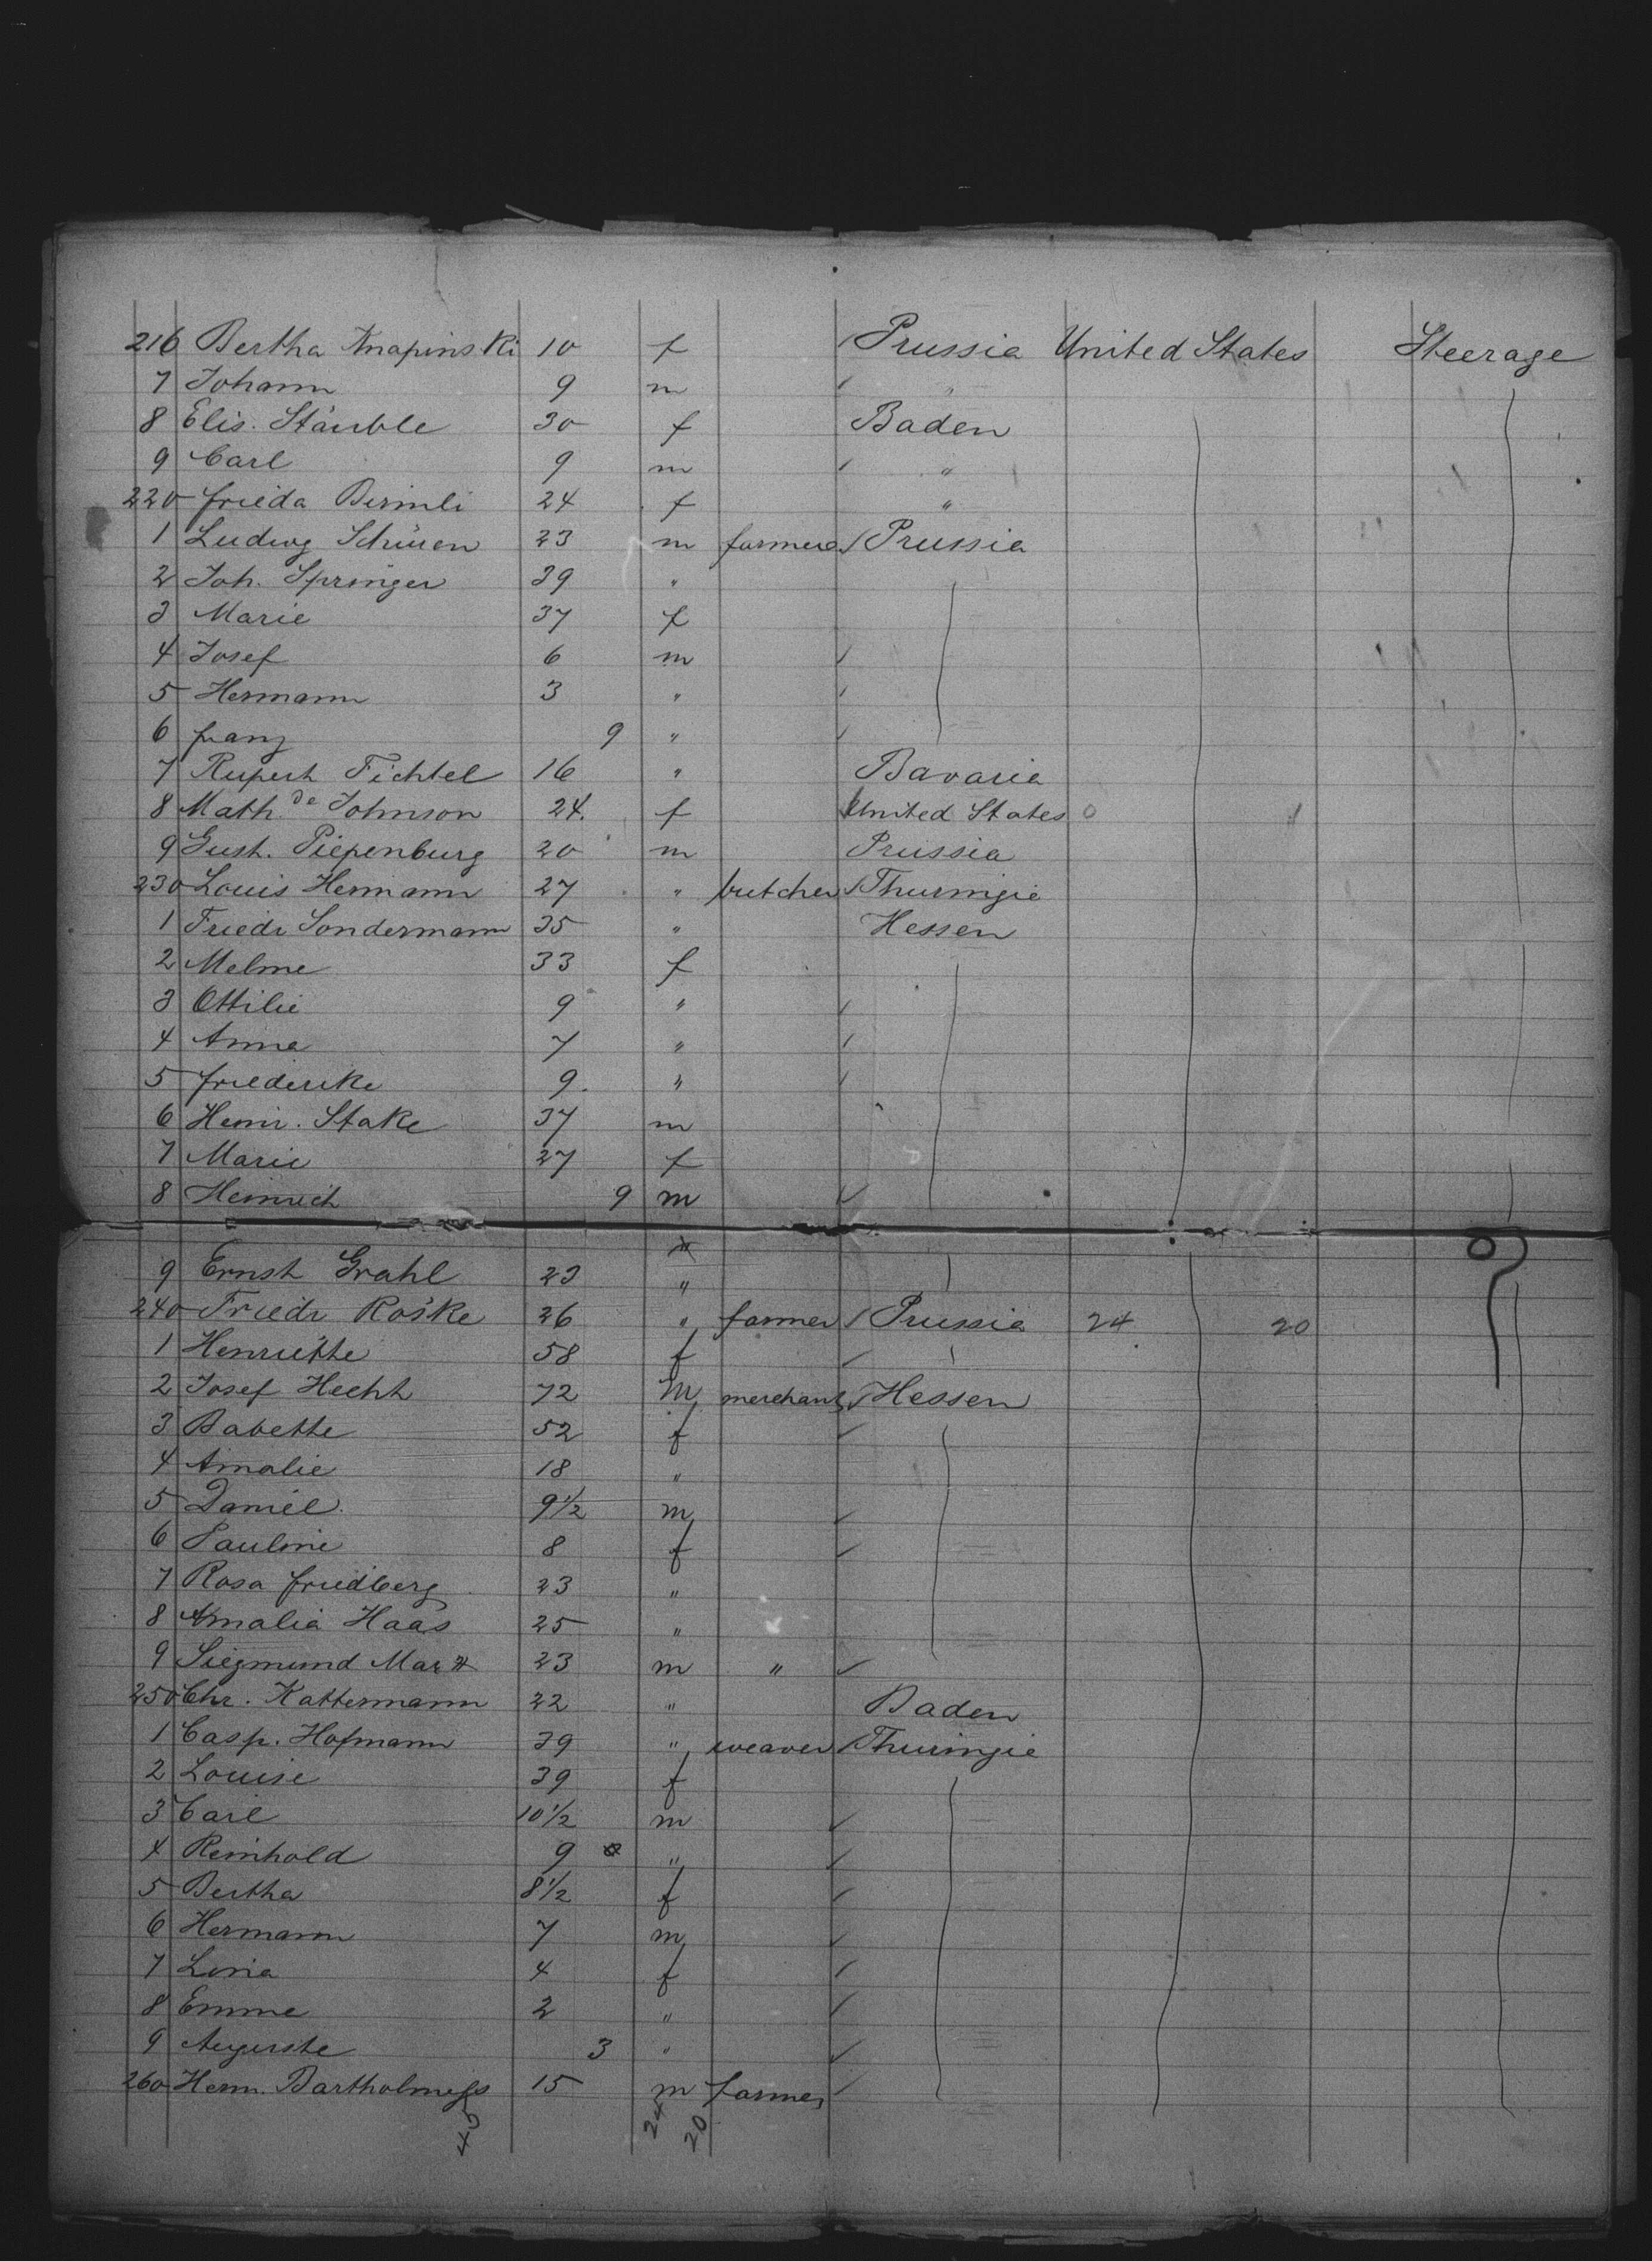 216 Bertha Knapinski 10 f Prussia United States Steerage
7 Johann 9 m "
8 Elis. Stäuble 30 f Baden
9 Carl 9 m "
220 Frieda 24 f "
1 Ludwig Schüren 23 m farmer Prussia
2 Joh. Springer 39 "
3 Marie 37 f
4 Josef 6 m
5 Hermann 3 "
6 Franz 9 "
7 Rupert Fichtel 16 " Bavaria
8 Math.de Johnson 24. f United States 0
9 Gust. Piepenburg 20 m Prussia
230 Louis Hermann 27 " butcher Thuringie
1 Friedr Sondermann 35 " Hessen
2 33 f
3 Ottilie 9 "
4 Anna 7 "
5 Friederike 9. "
6 Heinr. Stake 37 m
7 Marie 27 f
8 Heinrich 9 m
9 Ernst Grahl 23 "
240 Friedr Roske 26 " farmer Prussia 24 20
1 Henriette 58 f
2 Josef Hecht 72 m merchant Hessen
3 Babette 52 f
4 Amalie 18 "
5 Daniel 9 1/2 m
6 Pauline 8 f
7 Rosa Friedberg 23 "
8 Amalia Haas 25 "
9 Siegmund 23 m "
250 Chr. Kattermann 22 " Baden
1 Casp. Hofmann 39 " weaver Thuringie
2 Louise 39 f
3 Carl 10 1/2 m
4 Reinhold 9 "
5 Bertha 8 1/2 f
6 Hermann 7 m
7 Lina 4 f
8 Emma 2 "
9 Auguste 3 "
260 Herm. Bartholmess 15 m farmer
45 24 20